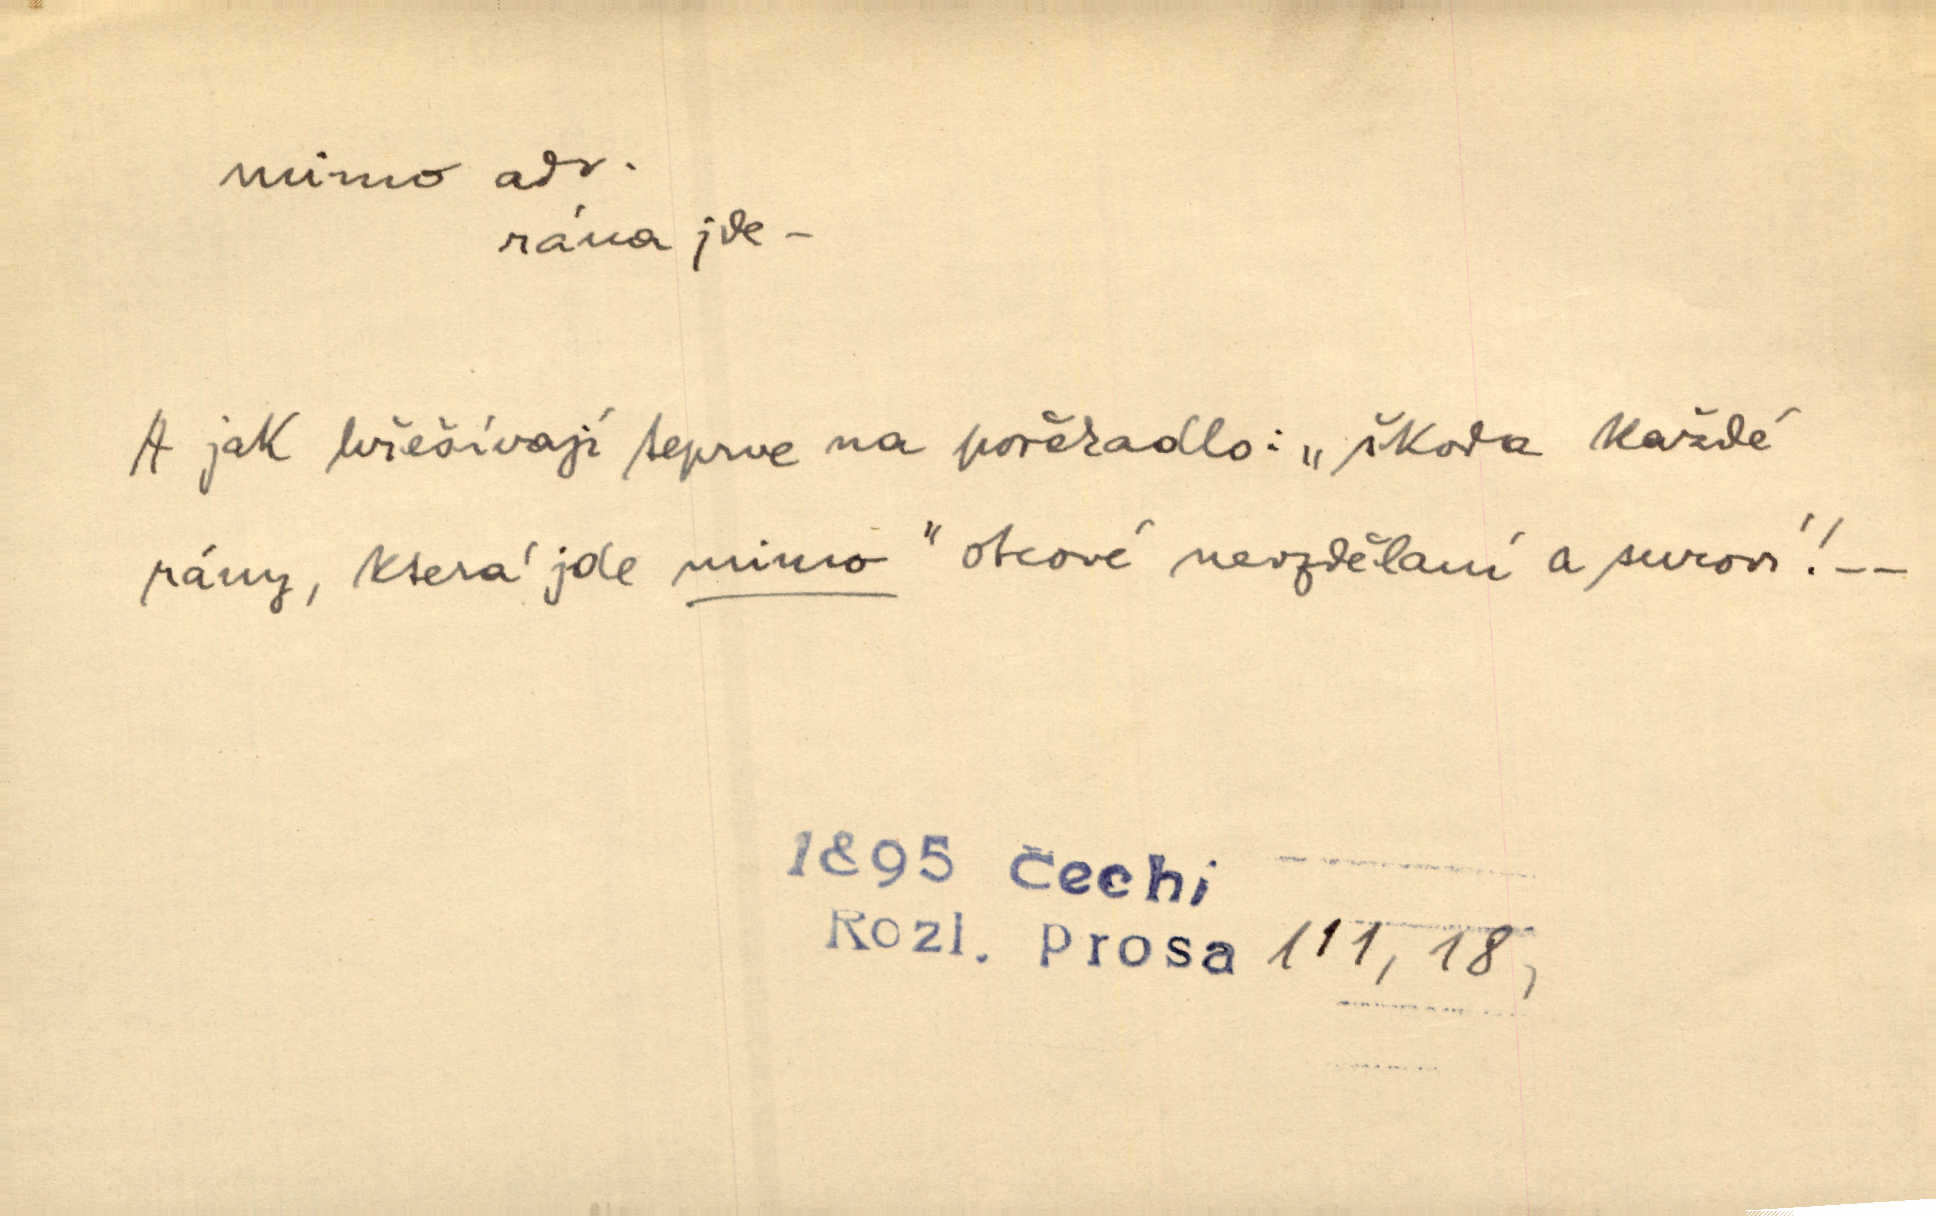 mimo adv.
rána jde –
A jak křešívají teprve na pořěkadlo: „škoda každé
rány, která jde mimo" otcové nevzdělaní a suroví! – –
1895 Čechi
Rozl. Prosa 111, 18,